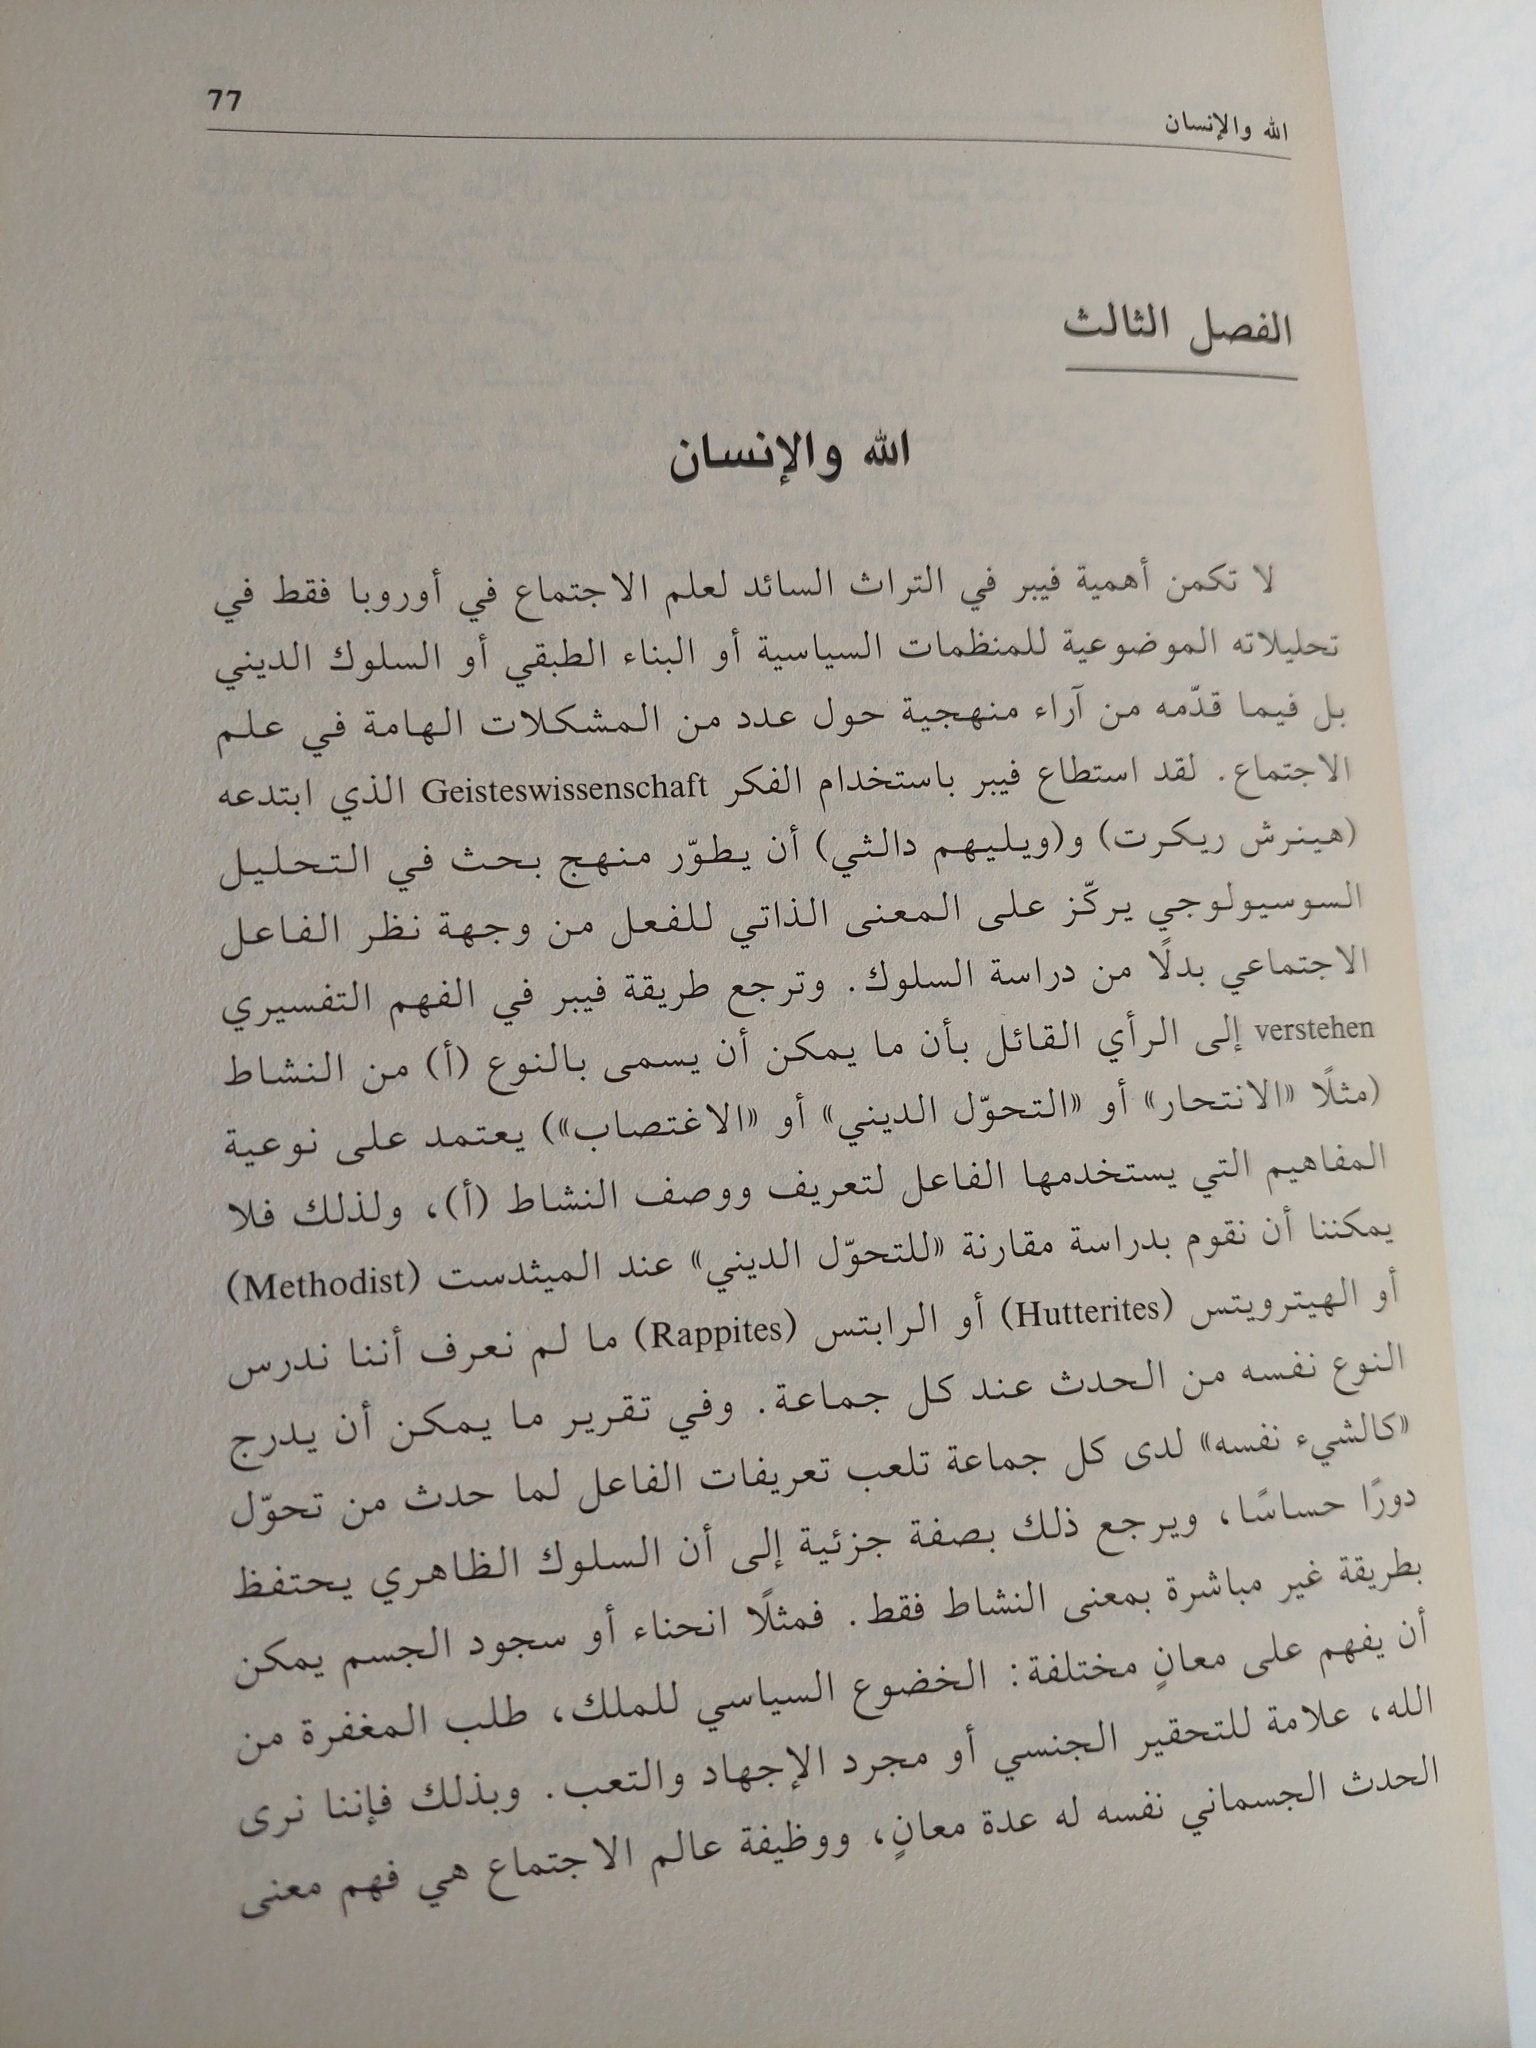 الله والإنسان
77
الفصل الثالث
الله والإنسان
لا تكمن أهمية فيبر في التراث السائد لعلم الاجتماع في أوروبا فقط في
تحليلاته الموضوعية للمنظمات السياسية أو البناء الطبقي أو السلوك الديني
بل فيما قدّمه من آراء منهجية حول عدد من المشكلات الهامة في علم
الاجتماع. لقد استطاع فيبر باستخدام الفكر Geisteswissenschaft الذي ابتدعه
(هينرش ريكرت) و(ويليهم دالثي) أن يطوّر منهج بحث في التحليل
السوسيولوجي يركّز على المعنى الذاتي للفعل من وجهة نظر الفاعل
الاجتماعي بدلًا من دراسة السلوك. وترجع طريقة فيبر في الفهم التفسيري
verstehen إلى الرأي القائل بأن ما يمكن أن يسمى بالنوع (أ) من النشاط
(مثلًا «الانتحار» أو «التحوّل الديني» أو «الاغتصاب») يعتمد على نوعية
المفاهيم التي يستخدمها الفاعل لتعريف ووصف النشاط (أ)، ولذلك فلا
يمكننا أن نقوم بدراسة مقارنة «للتحوّل الديني» عند الميثدست (Methodist)
أو الهيترويتس (Hutterites) أو الرابتس (Rappites) ما لم نعرف أننا ندرس
النوع نفسه من الحدث عند كل جماعة. وفي تقرير ما يمكن أن يدرج
«كالشيء نفسه» لدى كل جماعة تلعب تعريفات الفاعل لما حدث من تحوّل
دورًا حساسًا، ويرجع ذلك بصفة جزئية إلى أن السلوك الظاهري يحتفظ
بطريقة غير مباشرة بمعنى النشاط فقط. فمثلًا انحناء أو سجود الجسم يمكن
أن يفهم على معانٍ مختلفة: الخضوع السياسي للملك، طلب المغفرة من
الله، علامة للتحقير الجنسي أو مجرد الإجهاد والتعب. وبذلك فإننا نرى
الحدث الجسماني نفسه له عدة معانٍ، ووظيفة عالم الاجتماع هي فهم معنى